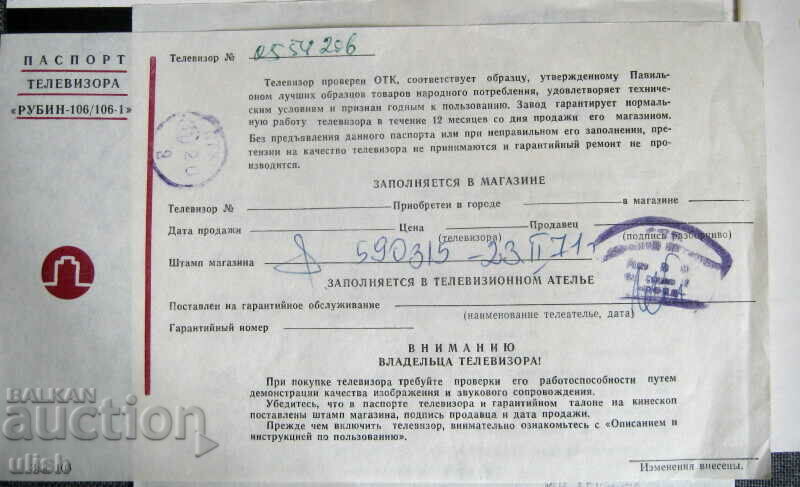 ПАСПОРТ
ТЕЛЕВИЗОРА
«РУБИН-106/106-1»
Телевизор № 0554206
Телевизор проверен ОТК, соответствует образцу, утвержденному Павиль-
оном лучших образцов товаров народного потребления, удовлетворяет техниче-
ским условиям и признан годным к пользованию. Завод гарантирует нормаль-
ную работу телевизора в течение 12 месяцев со дня продажи его магазином.
Без предъявления данного паспорта или при неправильном его заполнении, пре-
тензии на качество телевизора не принимаются и гарантийный ремонт не про-
изводится.
ЗАПОЛНЯЕТСЯ В МАГАЗИНЕ
Телевизор № Приобретен в городе в магазине
Дата продажи Цена Продавец
(телевизора) (подпись разборчиво)
Штамп магазина 590315-23.II.71г
ЗАПОЛНЯЕТСЯ В ТЕЛЕВИЗИОННОМ АТЕЛЬЕ
Поставлен на гарантийное обслуживание
(наименование телеателье, дата)
Гарантийный номер
ВНИМАНИЮ
ВЛАДЕЛЬЦА ТЕЛЕВИЗОРА!
При покупке телевизора требуйте проверки его работоспособности путем
демонстрации качества изображения и звукового сопровождения.
Убедитесь, что в паспорте телевизора и гарантийном талоне на кинескоп
поставлены штамп магазина, подпись продавца и дата продажи.
Прежде чем включить телевизор, внимательно ознакомьтесь с «Описанием и
инструкцией по пользованию».
Изменения внесены.
BALKAN
auction
ulish